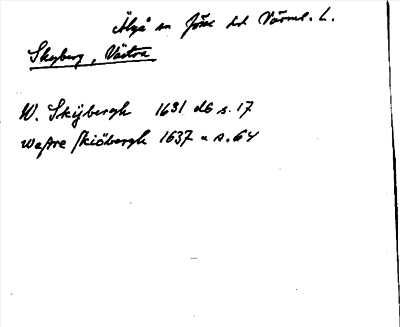 Älgå sn Jösse hd Värml. L.
Skyberg, Västra
W. Skijbergh 1631 d6 s. 17
Wästre Skiöbergh 1637 " s. 64